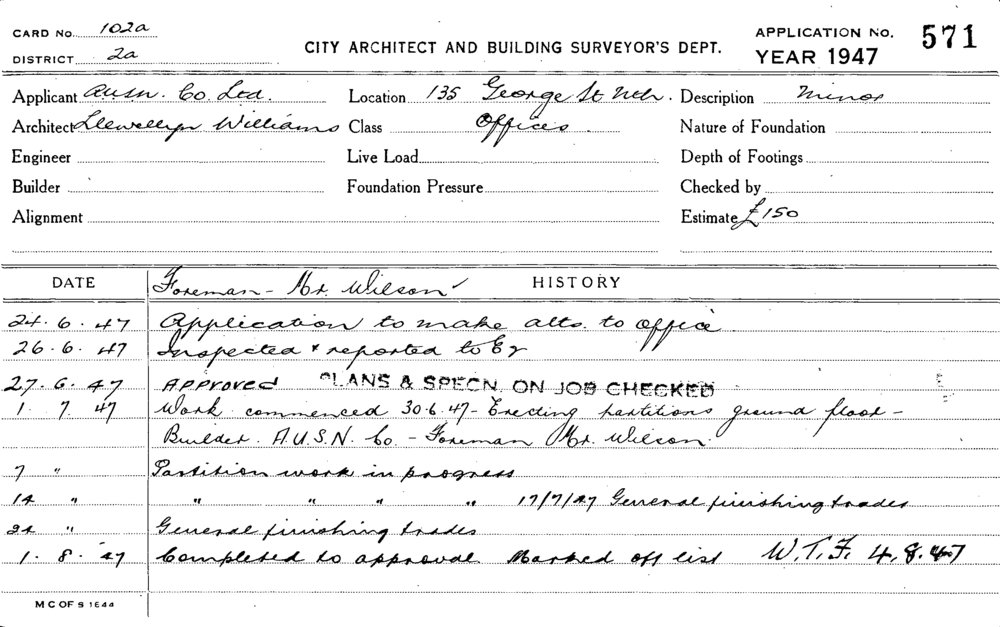 CARD No. 102a
DISTRICT 2a
CITY ARCHITECT AND BUILDING SURVEYOR'S DEPT.
APPLICATION No. 571
YEAR 1947
Applicant A.U.S.N. Co Ltd. Location 135 George St Nth. Description Minor
Architect Llewellyn Williams Class Offices Nature of Foundation
Engineer Live Load Depth of Footings
Builder Foundation Pressure Checked by
Alignment Estimate £150
DATE Foreman - Mr. Wilson HISTORY
24.6.47 Application to make alts. to office
26.6.47 Inspected & reported to
27.6.47 Approved PLANS & SPECN. ON JOB CHECKED
1 7 47 Work commenced 30.6.47 - Erecting partitions ground floor -
Builder. A.U.S.N. Co. - Foreman Mr. Wilson.
7 " Partition work in progress
14 " " " " " 17/7/47 General finishing trades
24 " General finishing trades
1.8.47 Completed to approval Marked off list W.T.F. 4.8.47
M C OF S 1644